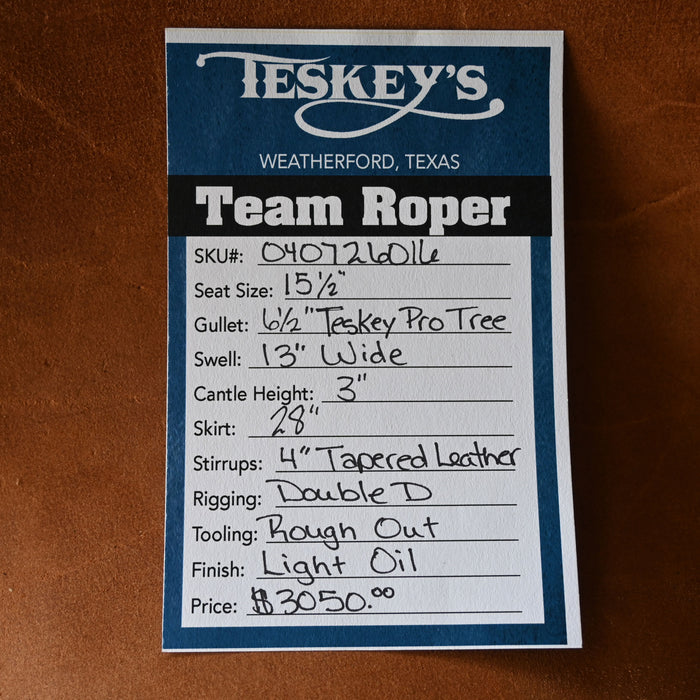 TESKEY'S
WEATHERFORD, TEXAS
Team Roper
SKU#: 040726016
Seat Size: 15 1/2"
Gullet: 6 1/2" Teskey Pro Tree
Swell: 13" Wide
Cantle Height: 3"
Skirt: 28"
Stirrups: 4" Tapered Leather
Rigging: Double D
Tooling: Rough Out
Finish: Light Oil
Price: $3050.00